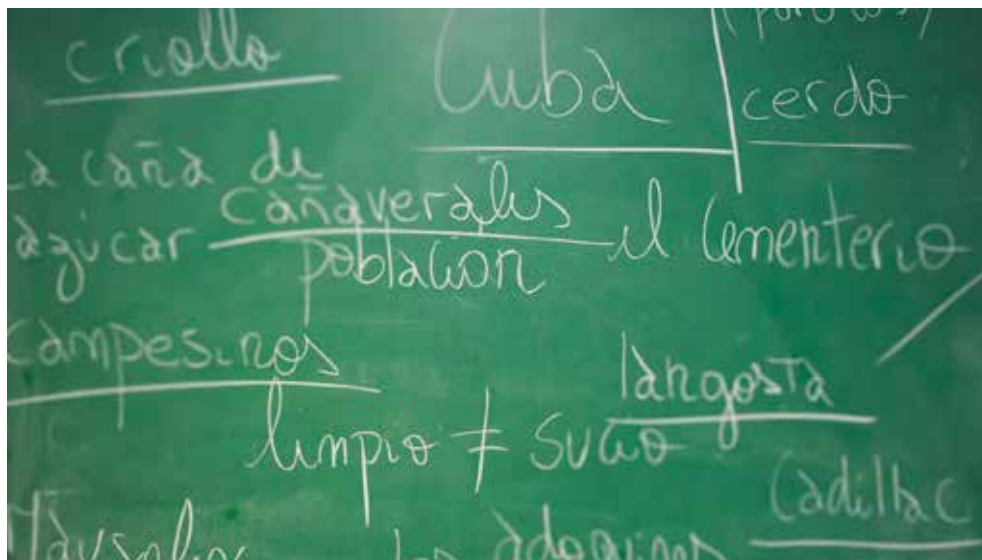 criollo
Cuba
cerdo
La caña de
azúcar
cañaverales
población
el cementerio
campesinos
langosta
limpio ≠ sucio
Cadillac
los adoquines